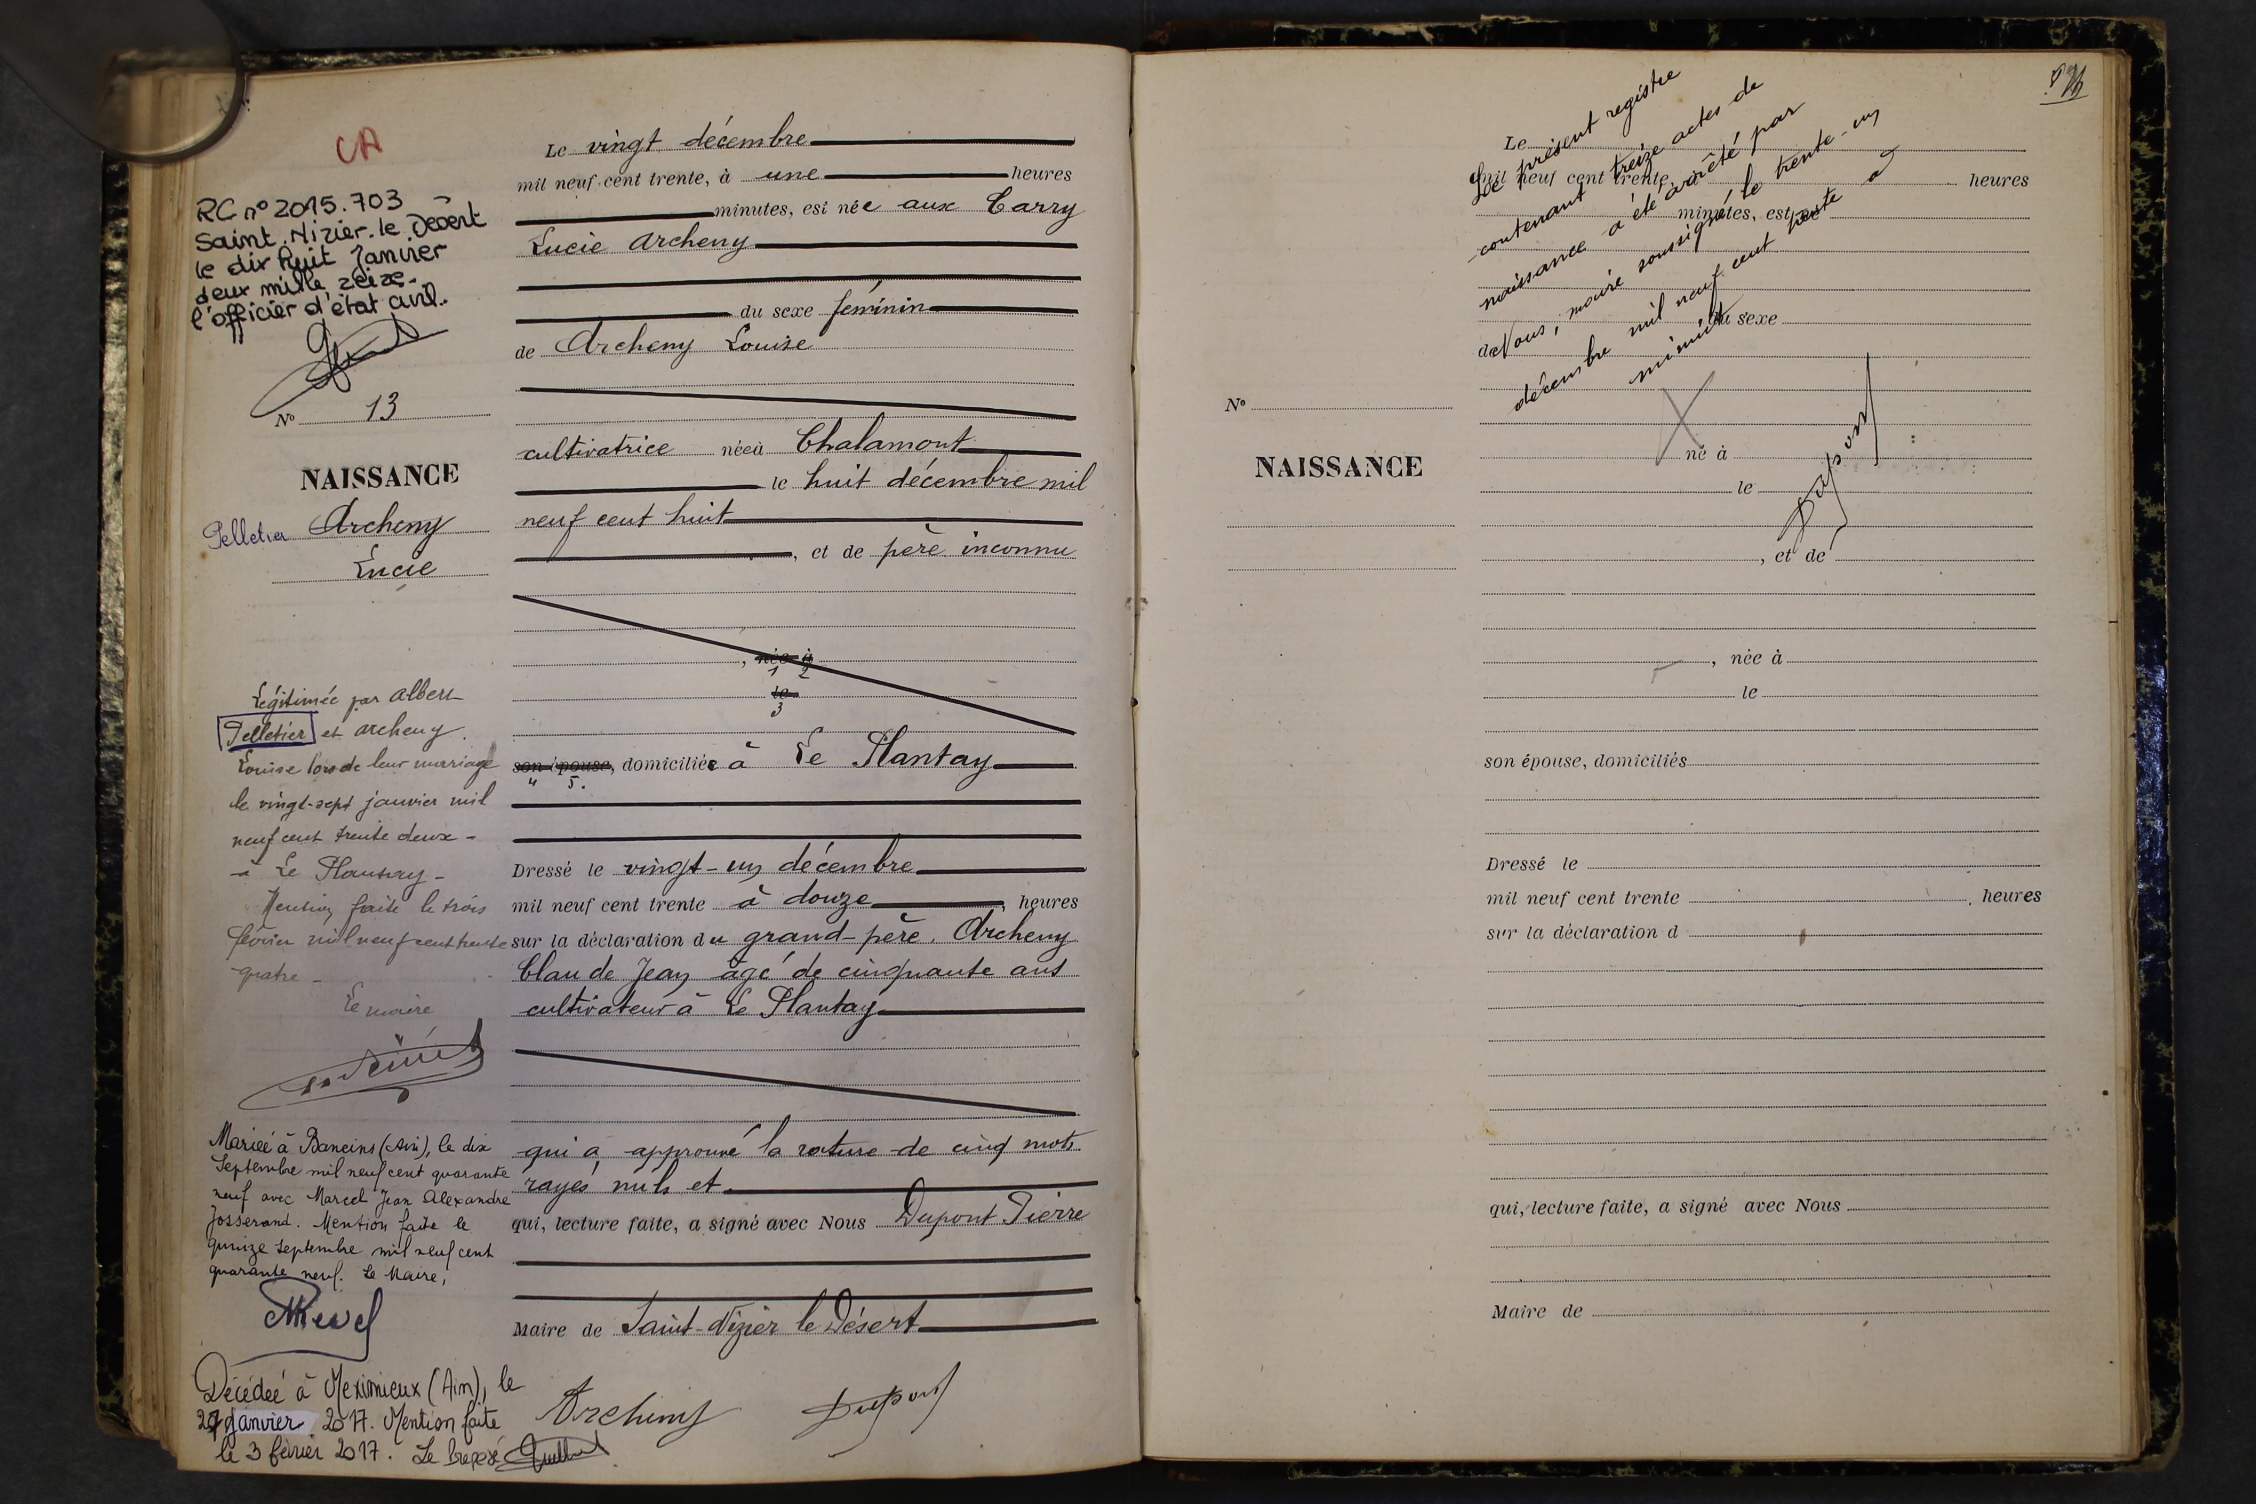 CA
RC nº 2015.703
Saint.Nizier.le Désert
le dix huit Janvier
deux mille seize.
l'officier d'état civil.
Nº 13
NAISSANCE
Pelletier Archeny
Lucie
Légitimée par Albert
Pelletier et Archeny.
Louise lors de leur mariage
le vingt-sept janvier mil
neuf cent trente deux -
à Le Plantay -
Mention faite le trois
février mil neuf cent trente
quatre -
Le maire
Mariée à Baneins (Ain), le dix
Septembre mil neuf cent quarante
neuf avec Marcel Jean Alexandre
Josserand. Mention faite le
quinze septembre mil neuf cent
quarante neuf. Le Maire,
Décédée à Meximieux (Ain), le
janvier 2017. Mention faite
le 3 février 2017. Le
Le vingt décembre
mil neuf cent trente, à une heures
minutes, est née aux Carry
Lucie Archeny
du sexe féminin
de Archeny Louise
cultivatrice née à Chalamont
le huit décembre mil
neuf cent huit
, et de père inconnu
, née à
1 2
le
3
son épouse, domiciliée à Le Plantay
4 5.
Dressé le vingt-un décembre
mil neuf cent trente à douze, heures
sur la déclaration du grand-père. Archeny
Claude Jean âgé de cinquante ans
cultivateur à Le Plantay
qui a approuvé la rature de cinq mots
rayés nuls et
qui, lecture faite, a signé avec Nous Dupont Pierre
Maire de Saint-Nizier le Désert
Archeny Dupont
Le présent registre
contenant treize actes de
naissance a été arrêté par
Nous, maire soussigné le trente-un
décembre mil neuf cent trente à
minuit
Dupont
Le
mil neuf cent trente, à heures
minutes, est né
du sexe
de
Nº
NAISSANCE
né à
le
, et de
, née à
le
son épouse, domiciliés
Dressé le
mil neuf cent trente , heures
sur la déclaration d
qui, lecture faite, a signé avec Nous
Maire de